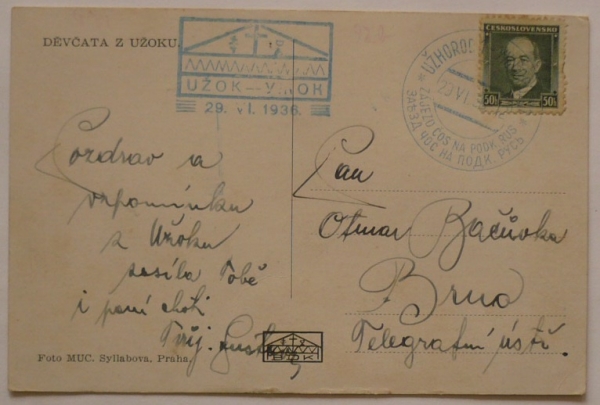 DĚVČATA Z UŽOKU.
UŽOK—VINOK
29. VI. 1936.
UŽHOROD
29.VI.
ZÁJEZD ČOS NA PODK. RUS
ЗАЪЗД ЧОС НА ПОДК. РУСЬ
ČESKOSLOVENSKO
50h 50h
Pozdrav a
vzpomínku
z Užoku
zasílá Tobě
i paní choti
Tvůj
Pan
Otmar Bačůvka
Brno
Telegrafní úst.
Foto MUC. Syllabova, Praha.